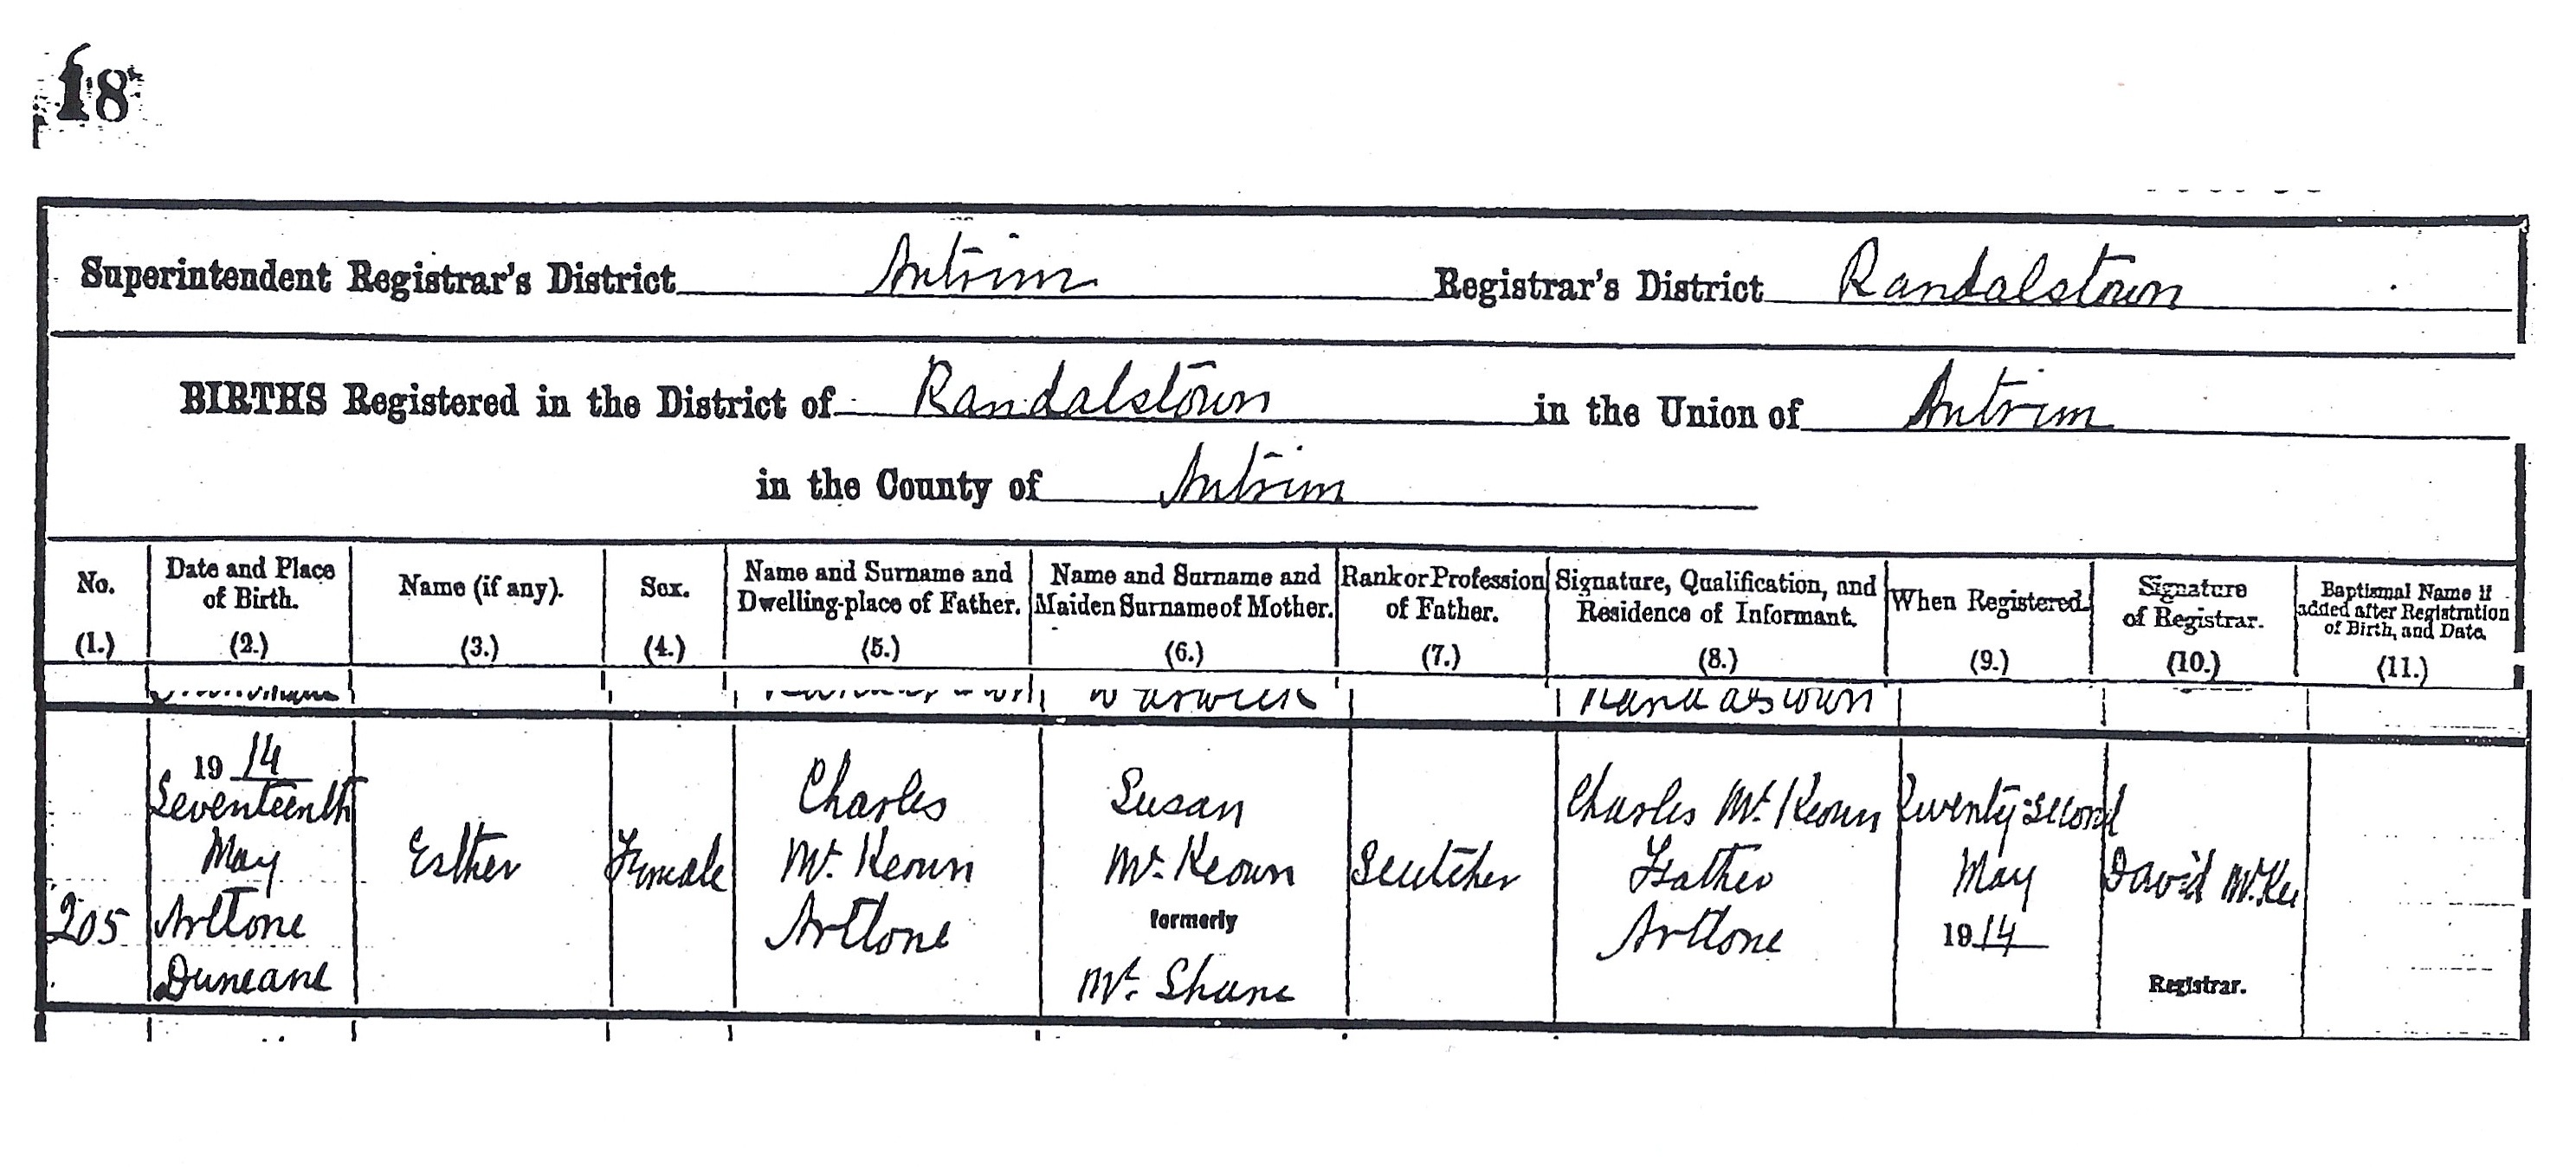 18
Superintendent Registrar's District Antrim Registrar's District Randalstown
BIRTHS Registered in the District of Randalstown in the Union of Antrim
in the County of Antrim
No. (1.)
Date and Place of Birth. (2.)
Name (if any). (3.)
Sex. (4.)
Name and Surname and Dwelling-place of Father. (5.)
Name and Surname and Maiden Surname of Mother. (6.)
Rank or Profession of Father. (7.)
Signature, Qualification, and Residence of Informant. (8.)
When Registered. (9.)
Signature of Registrar. (10.)
Baptismal Name if added after Registration of Birth, and Date. (11.)
Warwick
Randalstown
205
1914
Seventeenth
May
Artlone
Duneane
Esther
Female
Charles
Mc Keown
Artlone
Susan
Mc Keown
formerly
Mc Shane
Scutcher
Charles Mc Keown
Father
Artlone
Twenty-second
May
1914
David McKee
Registrar.